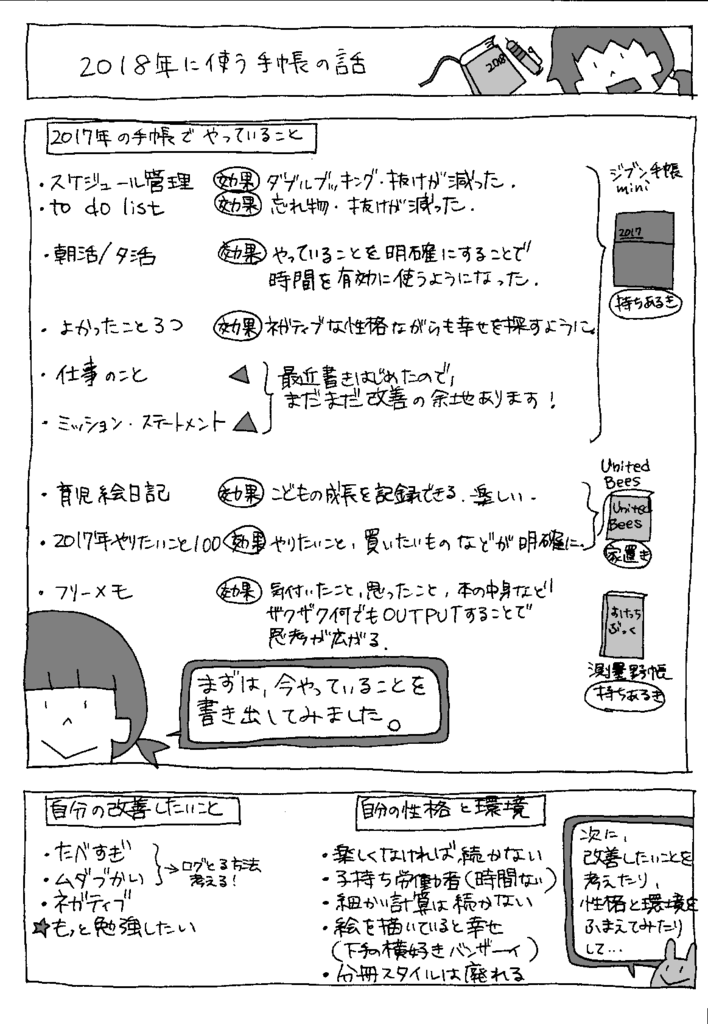 2018年に使う手帳の話
2018
2017年の手帳でやっていること
・スケジュール管理 効果 ダブルブッキング・抜けが減った.
・to do list 効果 忘れ物・抜けが減った.
・朝活/夕活 効果 やっていることを明確にすることで
時間を有効に使うようになった.
・よかったこと3つ 効果 ネガティブな性格ながらも幸せを探すように.
・仕事のこと
・ミッション・ステートメント
最近書きはじめたので,
まだまだ改善の余地あります!
ジブン手帳
mini
2017
持ちあるき
・育児絵日記 効果 こどもの成長を記録できる.楽しい.
・2017年やりたいこと100 効果 やりたいこと,買いたいものなどが明確に.
United
Bees
United
Bees
家置き
・フリーメモ 効果 気付いたこと,思ったこと,本の中身など
ザクザク何でもOUTPUTすることで
思考が広がる.
すけっち
ぶっく
測量野帳
持ちあるき
まずは,今やっていることを
書き出してみました。
自分の改善したいこと
・たべすぎ
・ムダづかい
→ログとる方法
考える!
・ネガティブ
★もっと勉強したい
自分の性格と環境
・楽しくなければ続かない
・子持ち労働者(時間ない)
・細かい計算は続かない
・絵を描いていると幸せ
(下手の横好きバンザーイ)
・分冊スタイルは廃れる
次に,
改善したいことを
考えたり,
性格と環境を
ふまえてみたり
して...